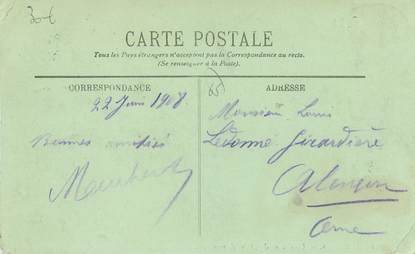 CARTE POSTALE
Tous les Pays étrangers n'acceptent pas la Correspondance au recto.
(Se renseigner à la Poste).
CORRESPONDANCE
22 Juin 1908
Bonnes amitiés
ADRESSE
Monsieur Louis
Girardière
Alençon
Orne